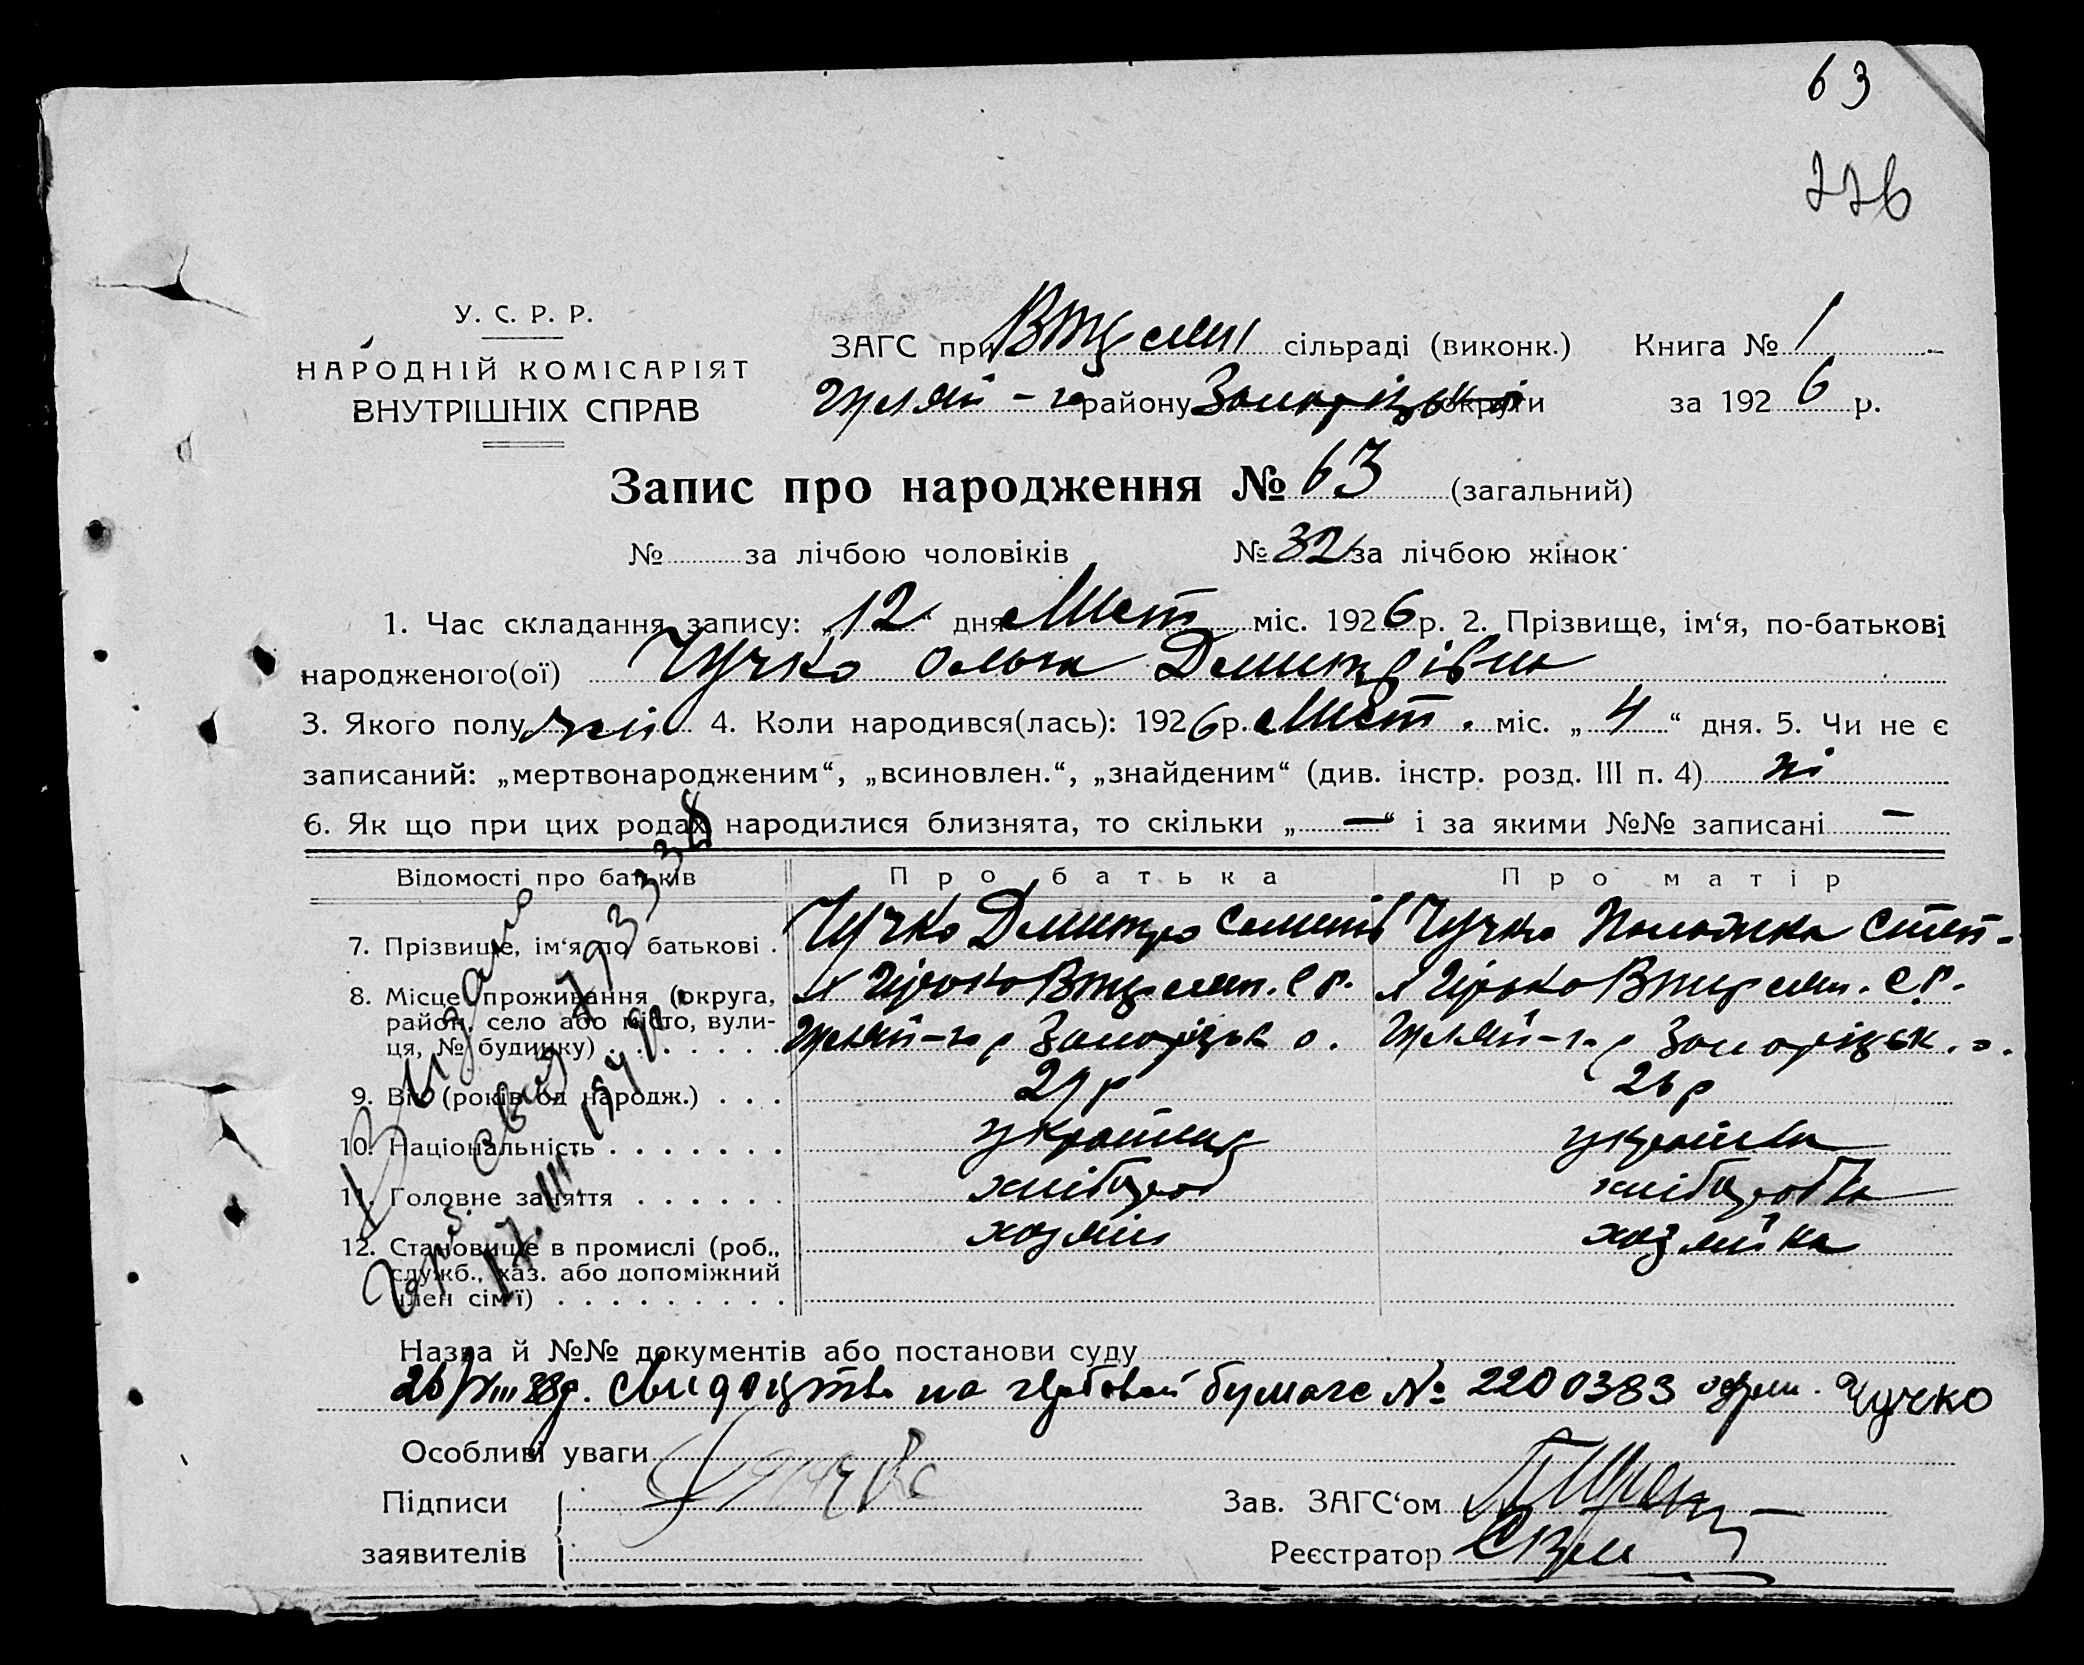 63
226
У. С. Р. Р.
НАРОДНІЙ КОМІСАРІЯТ
ВНУТРІШНІХ СПРАВ
ЗАГС при сільраді (виконк.) Книга № 1
Гуляй - го району Запоріцької округи за 192 6 р.
Запис про народження № 63 (загальний)
№ за лічбою чоловіків № 32 за лічбою жінок
1. Час складання запису: „ 12 “ дня Лист міс. 192 6 р. 2. Прізвище, ім‘я, по-батькові
народженого(ої) Чучко Ольга Дмитрівна
3. Якого полу жін 4. Коли народився(лась): 192 6 р. Лист. міс. „ 4 “ дня. 5. Чи не є
записаний: „мертвонародженим“, „всиновлен.“, „знайденим“ (див. інстр. розд. III п. 4) ні
6. Як що при цих родах народилися близнята, то скільки „ — “ і за якими №№ записані —
Відомості про батьків Про батька Про матір
7. Прізвище, ім‘я по батькові . Чучко Дмитро Чучко Степ-
8. Місце проживання (округа, С Р. С.Р.
район, село або місто, вули- Гуляй-го р Запоріцьк о. Гуляй-го р Запоріцьк. о.
ця, № будинку) . . . . . . .
9. Вік (років од народж.) . . . 29 р 26 р
10. Національність . . . . . . . українец українка
11. Головне заняття . . . . . . хлібороб хліборобка
12. Становище в промислі (роб., хозяін хозяйка
служб., хаз. або допоміжний
член сім‘ї) . . . . . . . . .
Видано
свид
17.III.
Назва й №№ документів або постанови суду
26/VIII 38 р. Свидоцтво на гербовой бумаге № 2200383 Чучко
Особливі уваги
Підписи Зав. ЗАГС‘ом
заявителів Реєстратор